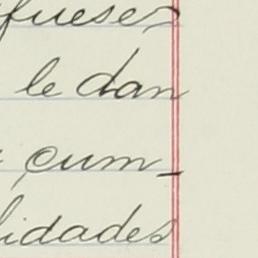 fueses
le dan
cum-
lidades